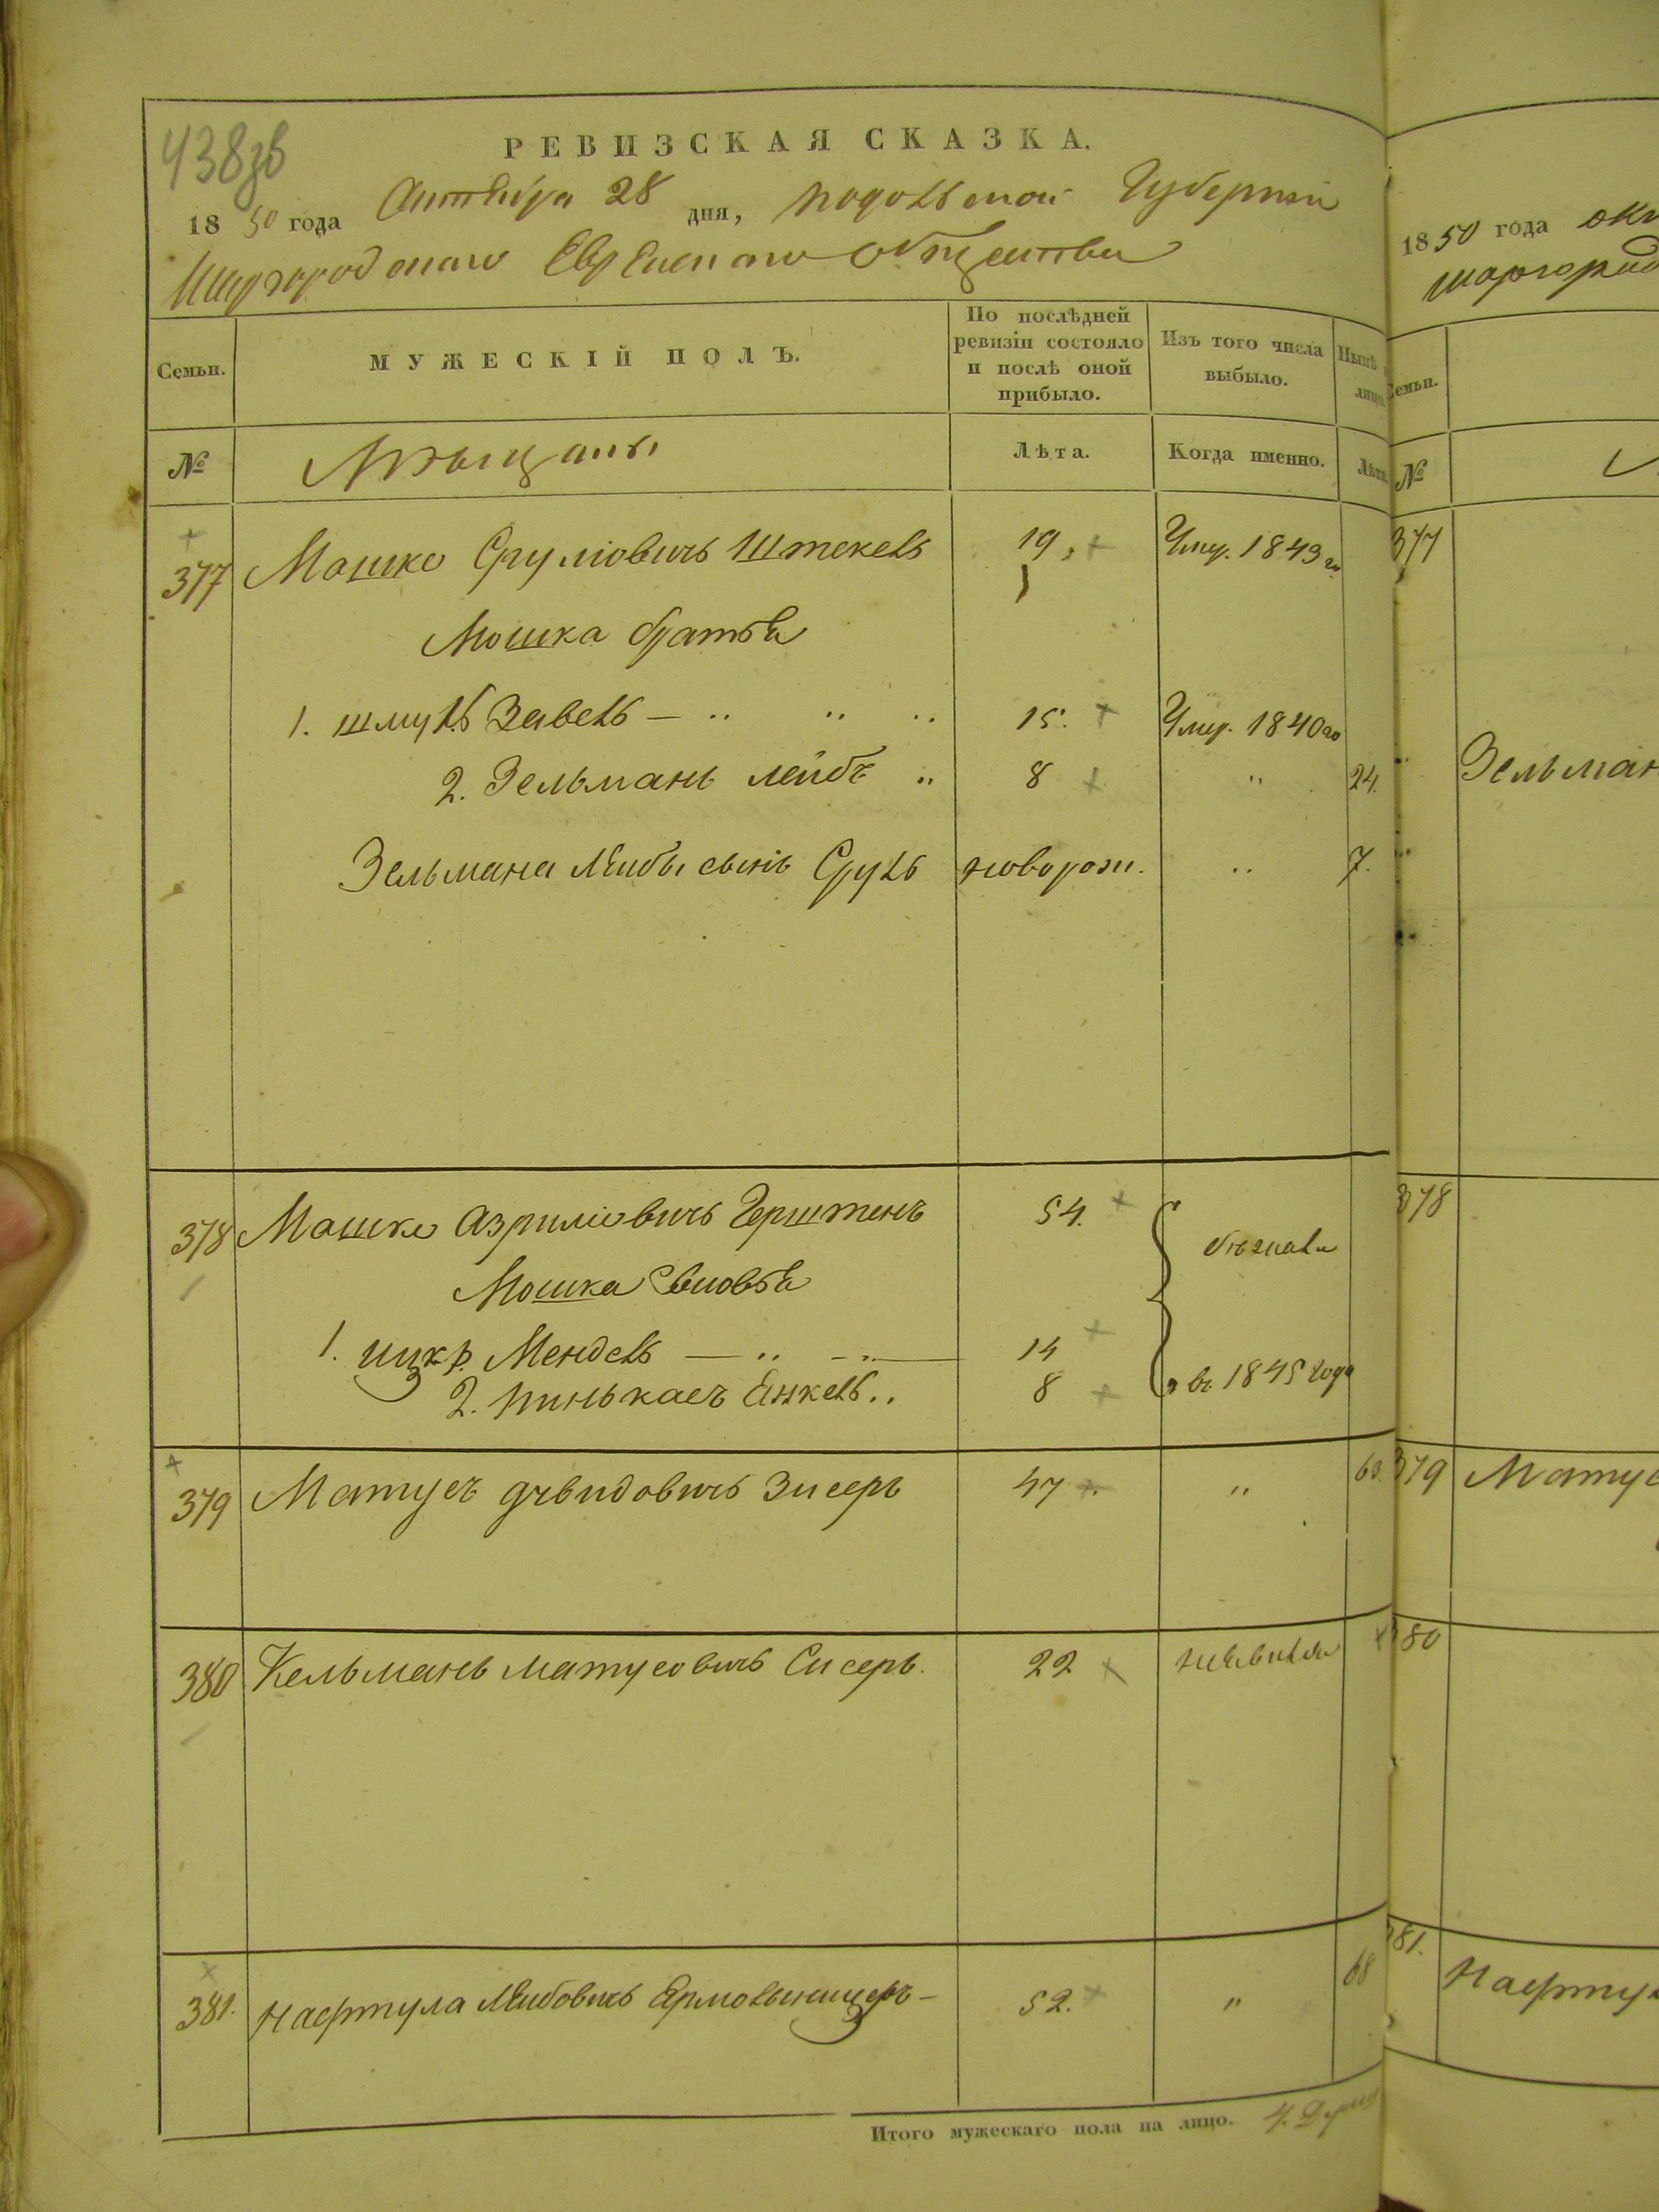 438зв
РЕВИЗСКАЯ СКАЗКА.
1850 года Октября 28 дня, подольской Губернии
Шаргородскаго Еврейскаго общества
Семьи. МУЖЕСКІЙ ПОЛЪ. По послѣдней ревизіи состояло и послѣ оной прибыло. Изъ того числа выбыло. Нынѣ лицо.
№ Мѣщаны Лѣта. Когда именно. Лѣта.
377 Мошко Сруліовичъ Штекель 19. Умер. 1843 го
Мошка братья
1. шмуль Завель — 15. Умер. 1840 го
2. Зельманъ лейбъ " 8 " 24.
Зельмана Лейбы сынъ Сруль новорож. " 7.
378 Мошко Азриліовичъ Герштенъ 54. бѣжали
Мошка Сыновья
1. ицко Мендель — " — 14
2. пинькасъ Янкель " 8 въ 1845 года
379 Матусъ дувидовичъ Зисеръ 47. " 63.
380 Кельманъ матусовичъ Сисеръ. 22
381. Нафтула Лейбовичъ 52. " 68
Итого мужескаго пола на лицо. 4. Души
1850 года окт
шаргород
Семьи.
№
377
Зельман
378
379 Матус
380
381.
Нафтул